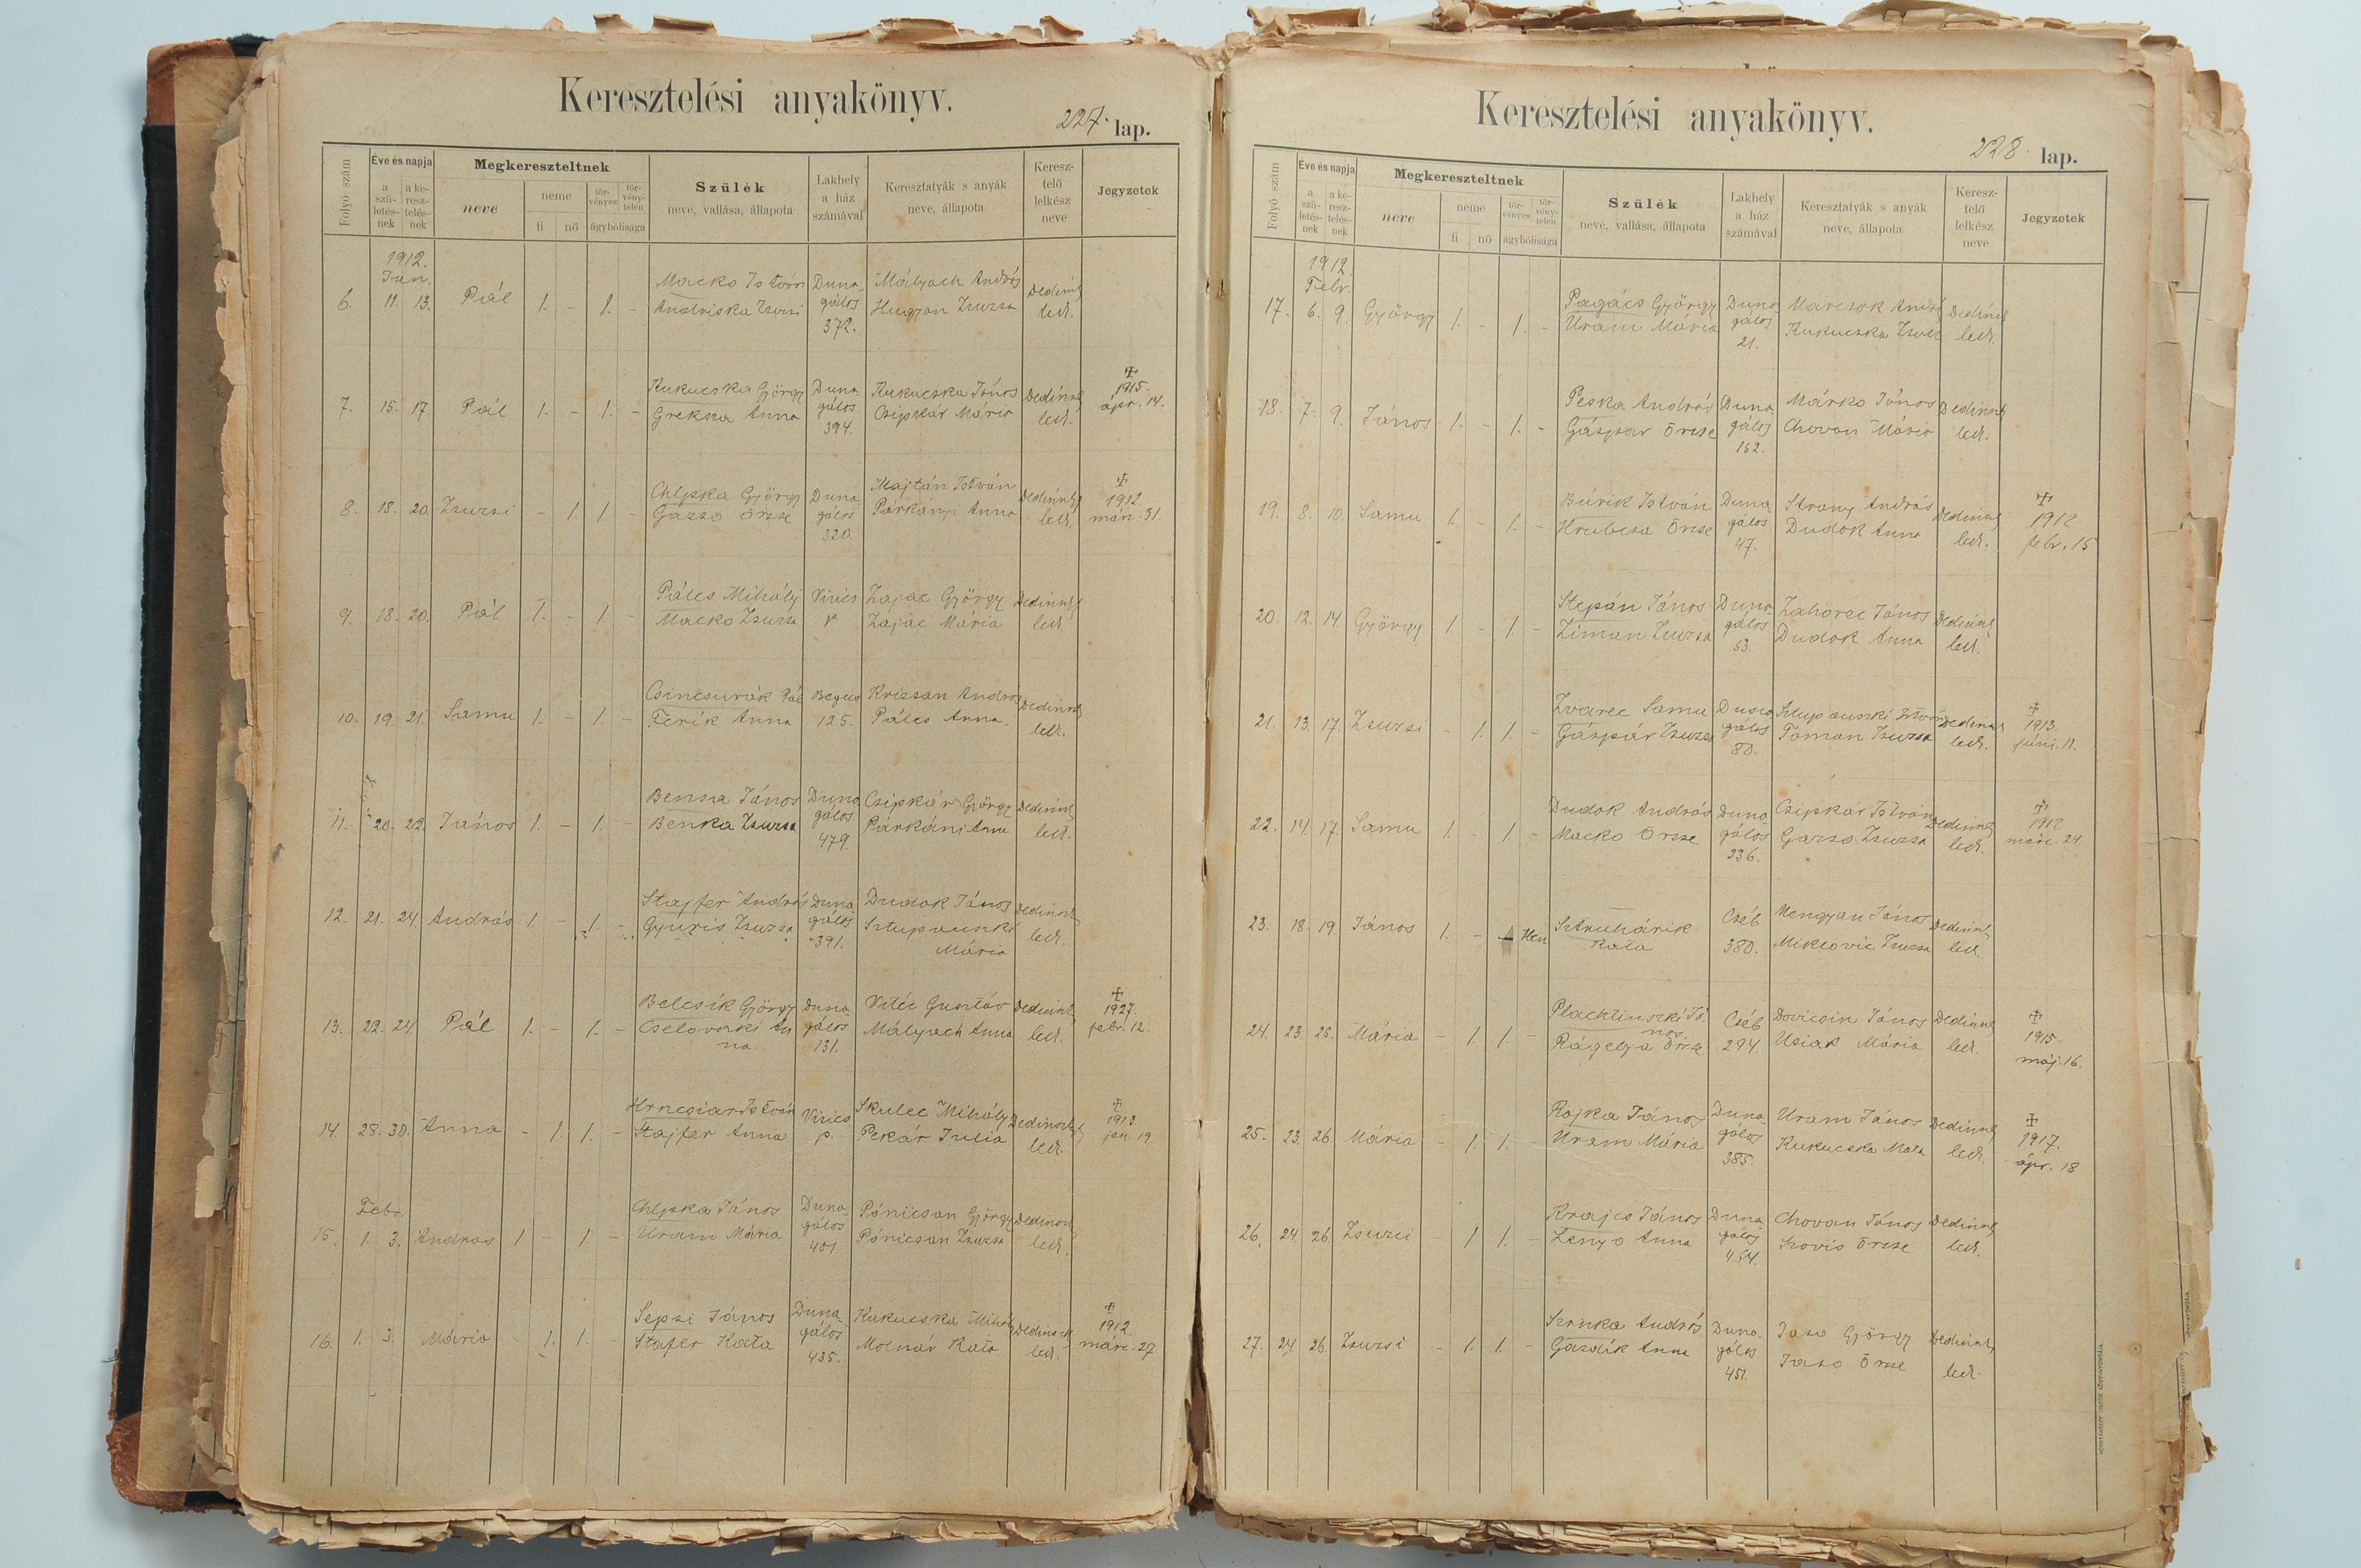 Keresztelési anyakönyv.
227. lap.
Folyó szám
Éve és napja
a szü-letés-nek
a ke-resz-telés-nek
Megkereszteltnek
neve
neme
fi
nő
tör-vényes
tör-vény-telen
ágybólisága
Szülék
neve, vallása, állapota
Lakhely a ház számával
Keresztatyák s anyák
neve, állapota
Keresz-telő lelkész neve
Jegyzetek
1912.
Jan.
6. 11. 13. Pál 1. - 1. -
Macko István
Andriska Zsuzsi
Duna
gálos
372.
Mályach András
Hugyan Zsuzsa
led.
7. 15. 17. Pál 1. - 1. -
Kukucska György
Greksza Anna
Duna
gálos
394.
Kukucska János
Csipkár Mária
led.
1915.
ápr. 14.
8. 18. 20. Zsuzsi - 1. 1. -
Chlpka György
Gazso Örzse
Duna
gálos
320.
Majtán István
Párkányi Anna
led.
1912.
márc. 31.
9. 18. 20. Pál 1. - 1. -
Pálcs Mihály
Macko Zsuzsa
Zajac György
Zajac Mária
led.
10. 19. 21. Samu 1. - 1. -
Csincsurák Pál
Ferik Anna
Begecs
125.
Krizsan András
Pálcs Anna
led.
11. 20. 22. János 1. - 1. -
Bensa János
Benka Zsuzsa
Duna
gálos
479.
Csipkár György
Párkáni Anna
led.
12. 21. 24. András 1. - 1. -
Stajfer András
Gyuris Zsuzsa
Duna
gálos
391.
Dudok János
Sztupavszki
Mária
led.
13. 22. 24. Pál 1. - 1. -
Belcsik György
Cselovszki An
na
Duna
gálos
131.
Vitéz Gusztáv
Mályach Anna
led.
1927.
febr. 12.
14. 28. 30. Anna - 1. 1. -
Hrncsiar István
Stajfer Anna
Skulec Mihály
Pekár Julia
led.
1913
jan. 19
Febr.
15. 1. 3. András 1 - 1. -
Chlpka János
Uram Mária
Duna-
gálos
401.
Pónicsan György
Pónicsan Zsuzsa
led.
16. 1. 3. Mária - 1. 1. -
Sepsi János
Stafer Kata
Duna
gálos
435.
Kukucska Mihály
Molnár Kata
led.
1912.
márc. 27
Keresztelési anyakönyv.
228. lap.
Folyó szám
Éve és napja
a szü-letés-nek
a ke-resz-telés-nek
Megkereszteltnek
neve
neme
fi
nő
tör-vényes
tör-vény-telen
ágybólisága
Szülék
neve, vallása, állapota
Lakhely a ház számával
Keresztatyák s anyák
neve, állapota
Keresz-telő lelkész neve
Jegyzetek
1912.
Febr.
17. 6. 9. György 1. - 1. -
Pagács György
Uram Mária
Duna
gálos
21.
Marcsok András
Kukucska Zsuzsi
led.
18. 7. 9. János 1. - 1. -
Peska András
Gáspár Örzse
Duna
gálos
152.
Márko János
Chovan Mária
led.
19. 8. 10. Samu 1. - 1. -
Burik István
Hrubcsa Örzse
Duna
gálos
47.
Strany András
Dudok Anna
led.
1912
febr. 15
20. 12. 14. György 1. - 1. -
Stepán János
Ziman Zsuzsa
Duna
gálos
53.
Zahorec János
Dudok Anna
led.
21. 13. 17. Zsuzsi - 1. 1. -
Zvarec Samu
Gáspár Zsuzsa
Duna
gálos
80.
Sztupavszki István
Toman Zsuzsa
led.
1913.
júni. 11.
22. 14. 17. Samu 1. - 1. -
Dudok András
Macko Örzse
Duna
gálos
336.
Csipkár István
Gazso Zsuzsa
led.
1912
márc. 24.
23. 18. 19. János 1. -
Sztruhárik
Kata
Cséb
380.
Mengyan János
Miklovic Zsuzsa
led.
24. 23. 25. Mária - 1. 1. -
Plachtinszki Já-
nos
Rágyelya Örzse
Cséb
294.
Dovicsin János
Usiak Mária
led.
1915.
máj. 16.
25. 23. 26. Mária - 1. 1. -
Rajka János
Uram Mária
Duna-
gálos
385.
Uram János
Kukucska Mária
led.
1917.
ápr. 18
26. 24. 26. Zsuzsi - 1 1. -
Krajcs János
Lenyo Anna
Duna
gálos
454.
Chovan János
Szovis Örzse
led.
27. 24 26. Zsuzsi - 1. 1. -
Szrnka András
Gazdik Anna
Duna-
gálos
451.
Jaso György
Jaso Örzse
led.